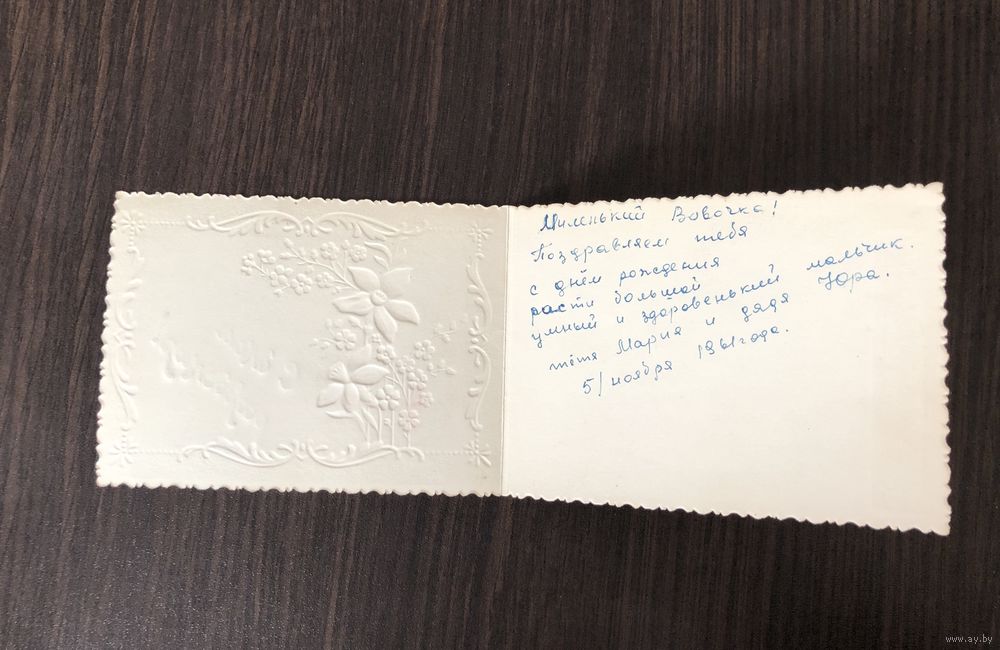 Миленький Вовочка!
Поздравляем тебя
с днём рождения
расти большой
умный и здоровенький мальчик.
тётя Мария и дядя Юра.
5/ноября 1961года.
www.ay.by